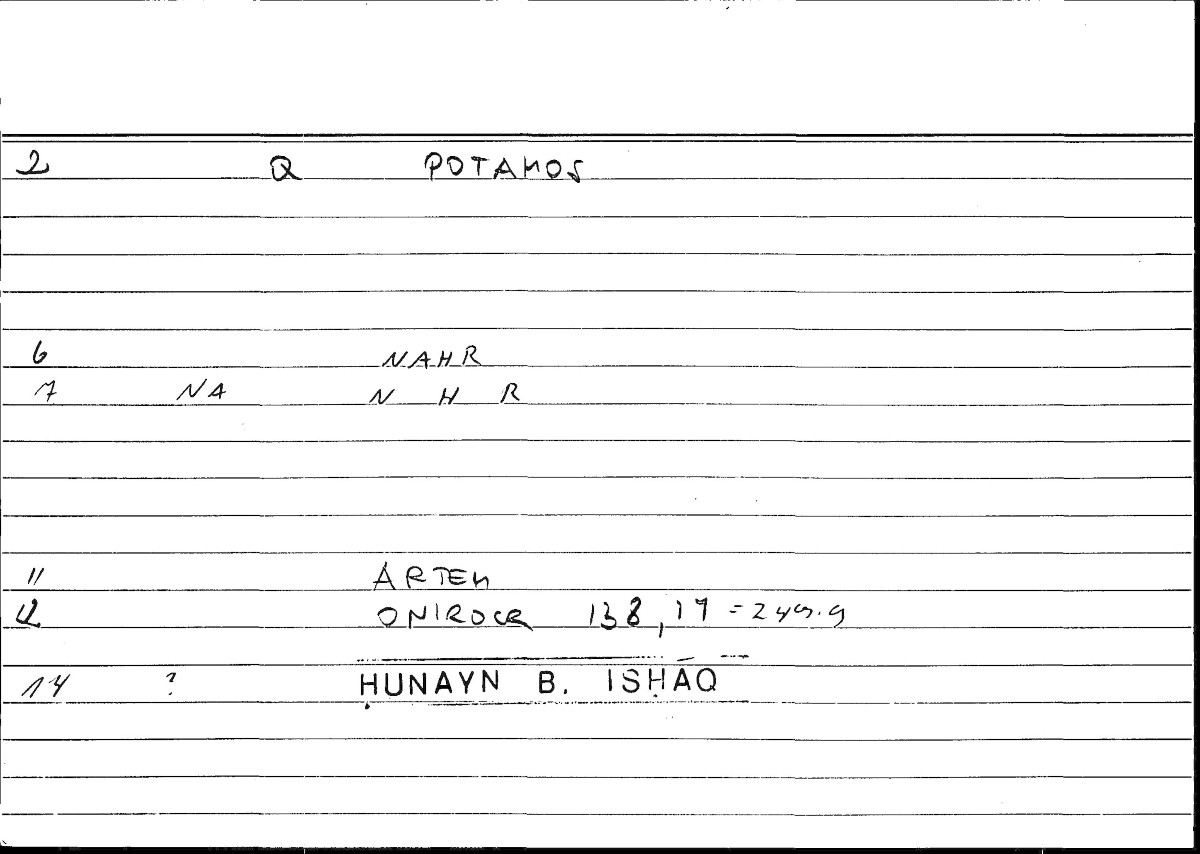 2 Q POTAMOS
6 NAHR
7 NA N H R
11 ARTEM
12 ONIROCR 138,17 = 249.9
14 ? ḤUNAYN B. ISḤĀQ